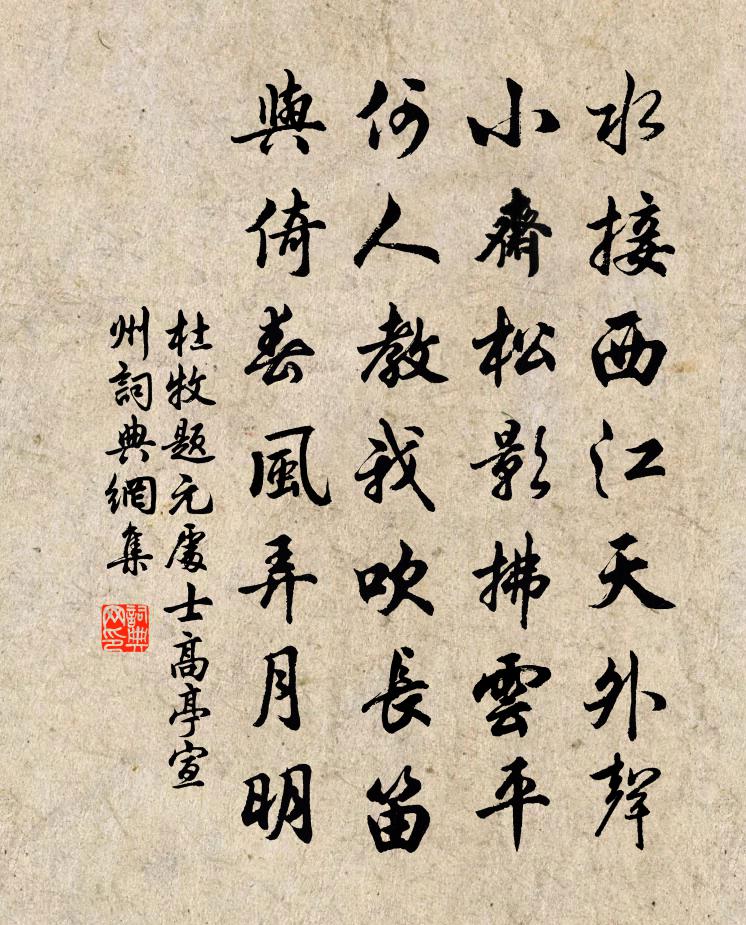 水接西江天外聲
小齋松影拂雲平
何人教我吹長笛
與倚春風弄月明
杜牧題元處士高亭宣
州詞典網集
詞典網印